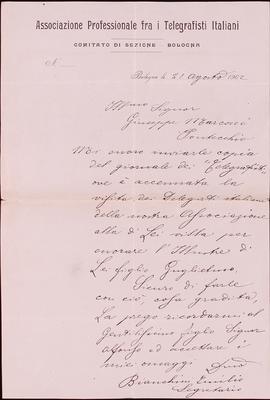 Associazione Professionale fra i Telegrafisti Italiani
COMITATO DI SEZIONE - BOLOGNA
N.
Bologna li 21 agosto 1902
Signor
Giuseppe Marconi
Pontecchio
Mi onoro inviarle copia
del giornale dei "Telegrafisti"
ove è accennata la
visita dei Delegati italiani
della nostra Associazione
alla di Lei villa per
onorare l'Illustre di
Lei figlio Guglielmo.
Sicuro di farle
con ciò, cosa gradita,
La prego ricordarmi al
Gentilissimo figlio Signor
Alfonso ed accettare i
miei omaggi
Bianchini Emilio
Segretario